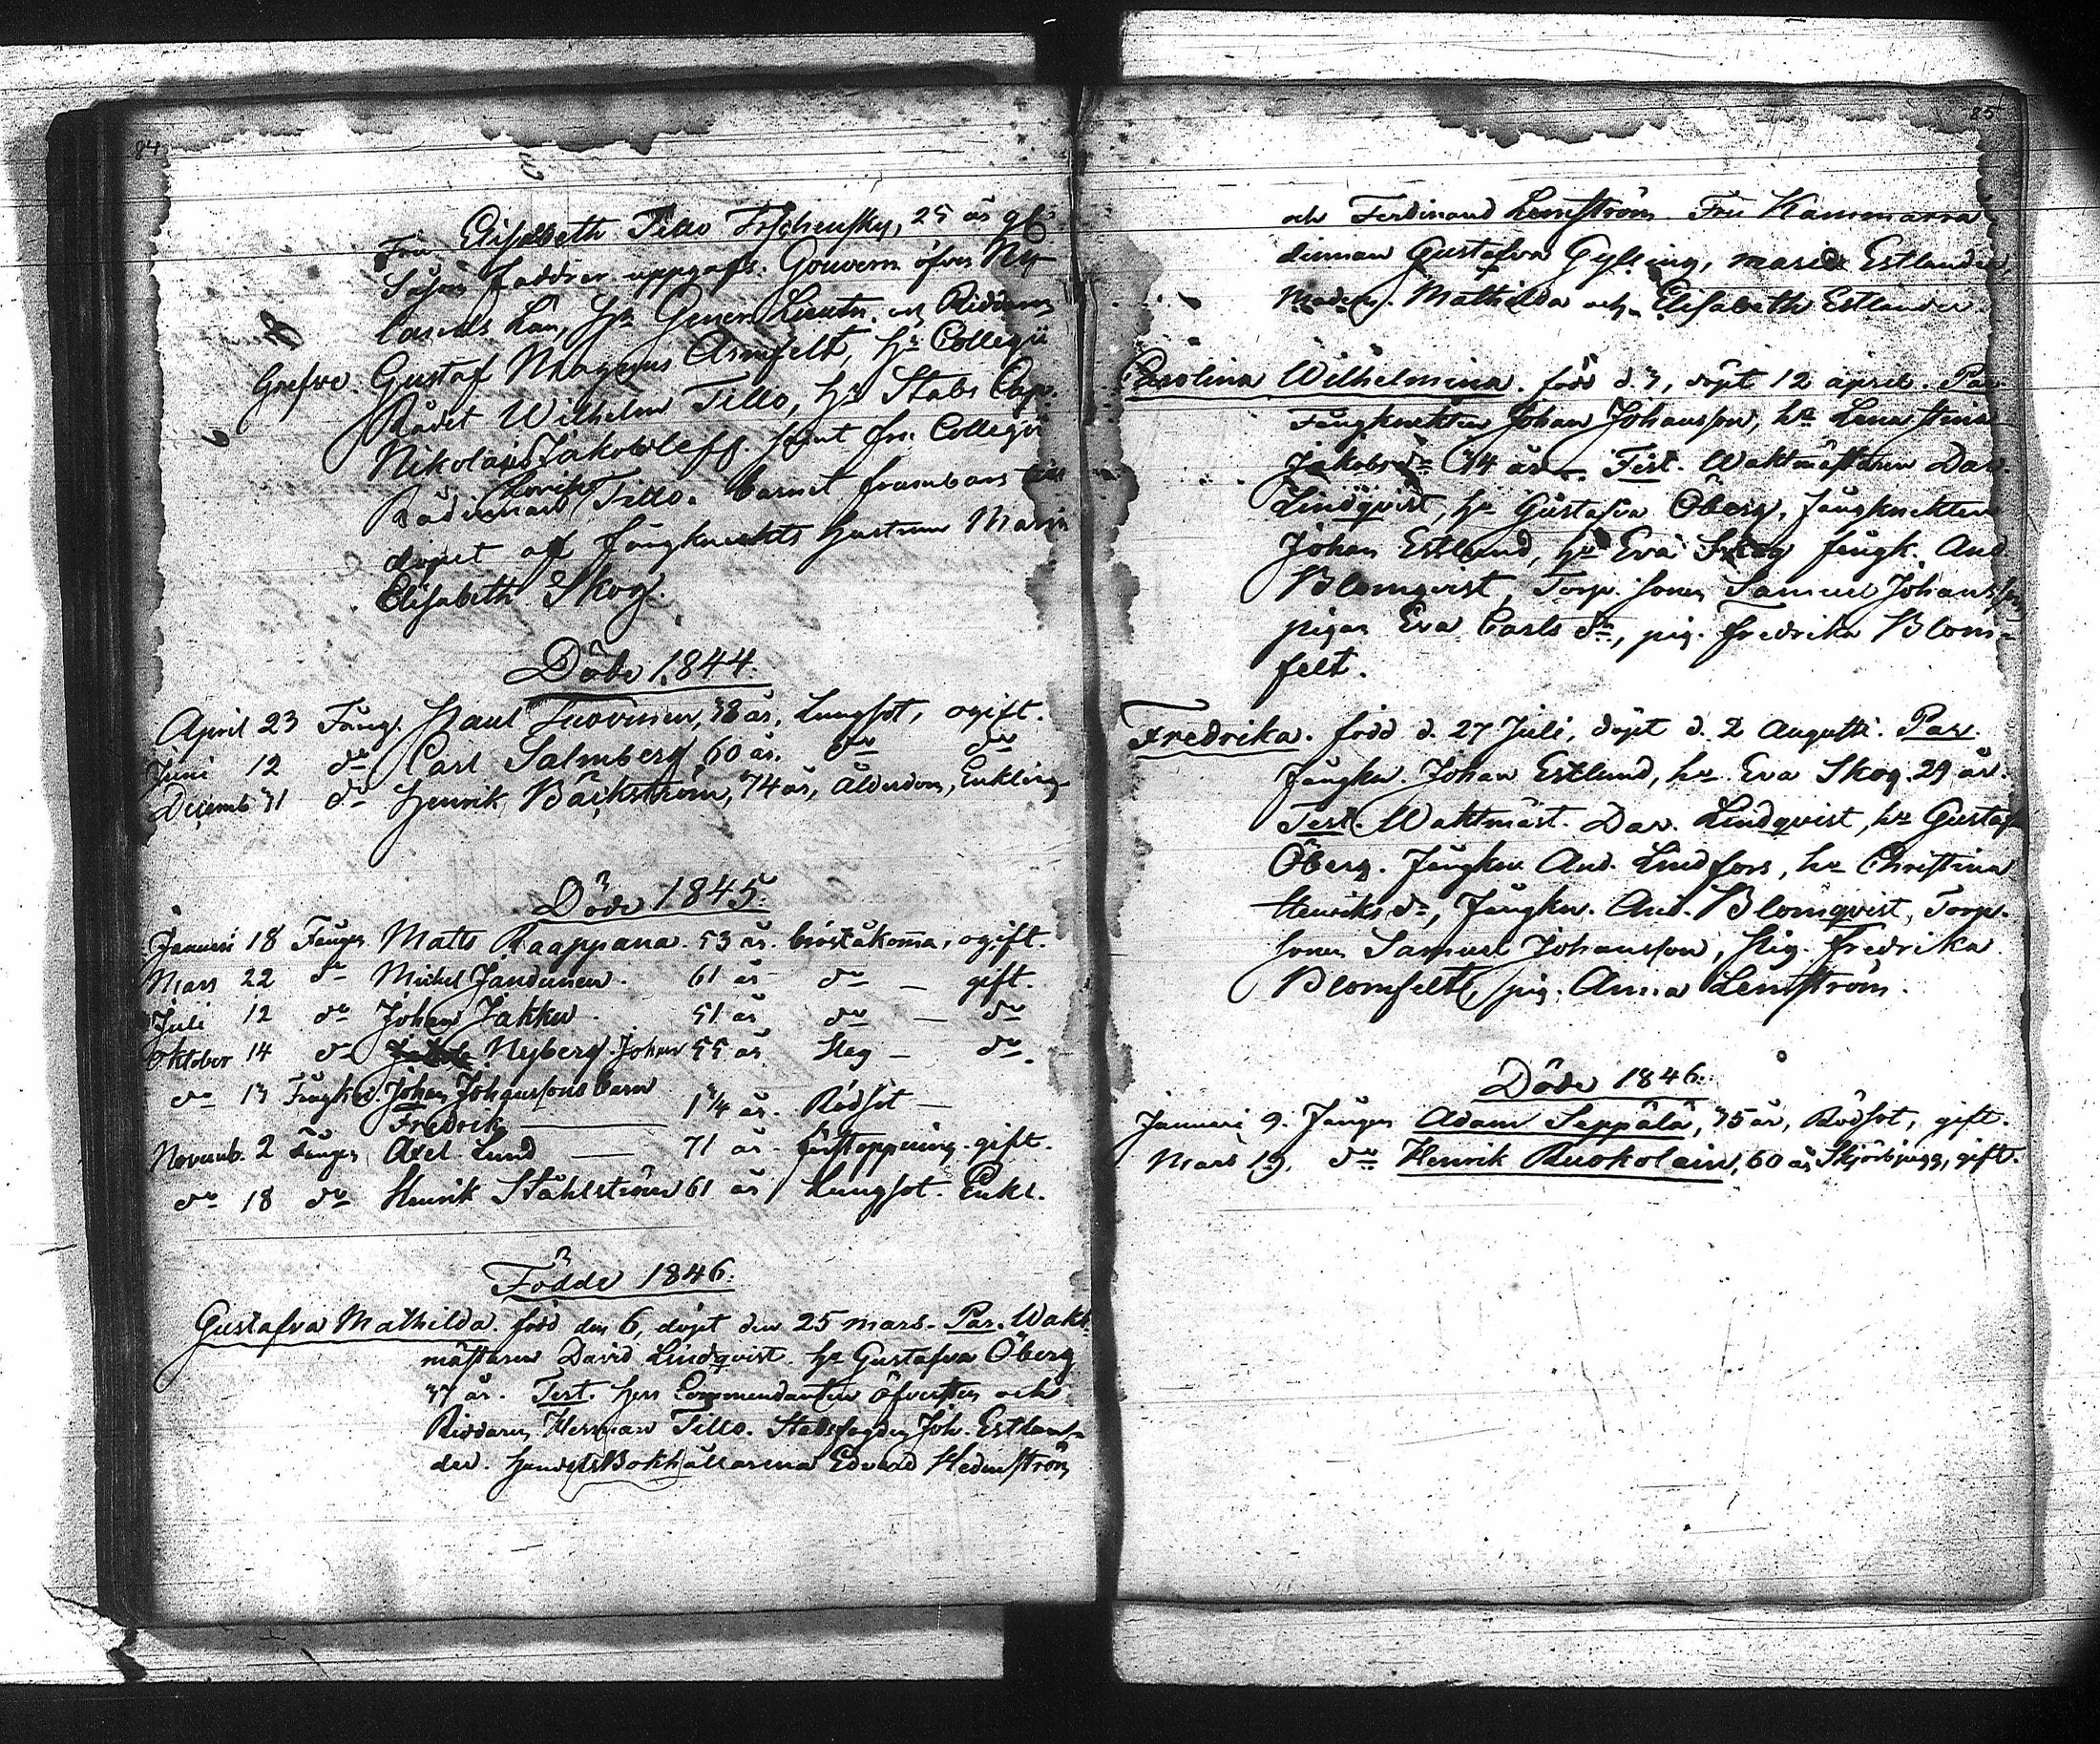 84
Fru Elisabeth Tillo Trschensky, 25 år gl.
Såsom faddrer uppgafs: Gouvern. öfver Ny-
lands Län, Hr General Lieutn. och Riddaren
Grefve Gustaf Magnus Armfelt, Hr Collegii
Rådet Wilhelm Tillo, Hr Stabs Cap.
Nikolai Jakovleff. samt fru Collegii
Rådinnan Lovisa Tillo. barnet frambars till
dopet af fångknekts hustrun Maria
Elisabeth Skog.
Döde 1844.
April 23 Fång. Paul Tuovinen, 38 år, Lungsot, ogift.
Juni 12 do Carl Salmberg 60 år. do do
Decemb. 31 do Henrik Bäckström, 74 år, Ålderdom, Enkling.
Döde 1845.
Januari 18 Fången Matts Raappana. 53 år. bröståkomma, ogift.
Mars 22 do Mickel Jandunen. 61 år do — gift.
Juli 12 do Johan Jakku 51 år do — do
Oktober 14 do Nyberg Johan 55 år Steg — do.
do 13 Fångkn. Johan Johanssons barn
Fredrik — 1 1/4 år. Rödsot —
Novemb. 2 Fången Axel Lund — 71 år. förstoppning. gift.
do 18 do Henrik Ståhlström 61 år Lungsot. Enkl.
Födde 1846.
Gustafva Mathilda. född den 6, döpt den 25 mars. Par. Wakt-
mästaren David Lindqvist. Ha Gustafva Öberg
37 år. Test. Herr Commendanten Öfversten och
Riddaren Herman Tillo. Stadsfogden Joh. Estlan-
der. Handels Bokhållarena Edvard Hedenström
85
och Ferdinand Lemström Fru Kammarra
dinnan Gustafva Gylling, maria Estlander,
Madem. Mathilda och Elisabeth Estlander.
Carolina Wilhelmina. född d. 3, döpt 12 april. Par.
Fångknekten Johan Johansson, ha Lena Stina
Jakobs dr 34 år. Test. Waktmästaren Dav.
Lindqvist, ha Gustafva Öberg, fångknekten
Johan Estlund, ha Eva Skog fångk. And.
Blomqvist, Torp. sonen Samuel Johansson,
pigan Eva Carls dr, pig. fredrika Blom-
felt.
Fredrika. född d. 27 Juli, döpt d. 2 Augusti. Par.
Fångkn. Johan Estlund, ha Eva Skog 29 år.
Test. Waktmäst. Dav. Lindqvist, ha Gustaf
Öberg. Fångkn. And. Lindfors, ha Christina
Henriks dr, Fångkn. And. Blomqvist, Torp.
sonen Samuel Johansson, Pig. Fredrika
Blomfelt, pig. Anna Lemström.
Döde 1846.
Januari 9. Fången Adam Seppälä, 35 år, Rödsot, gift.
Mars 19. do Henrik Ruokolain, 60 år Skjörbjugg, gift.